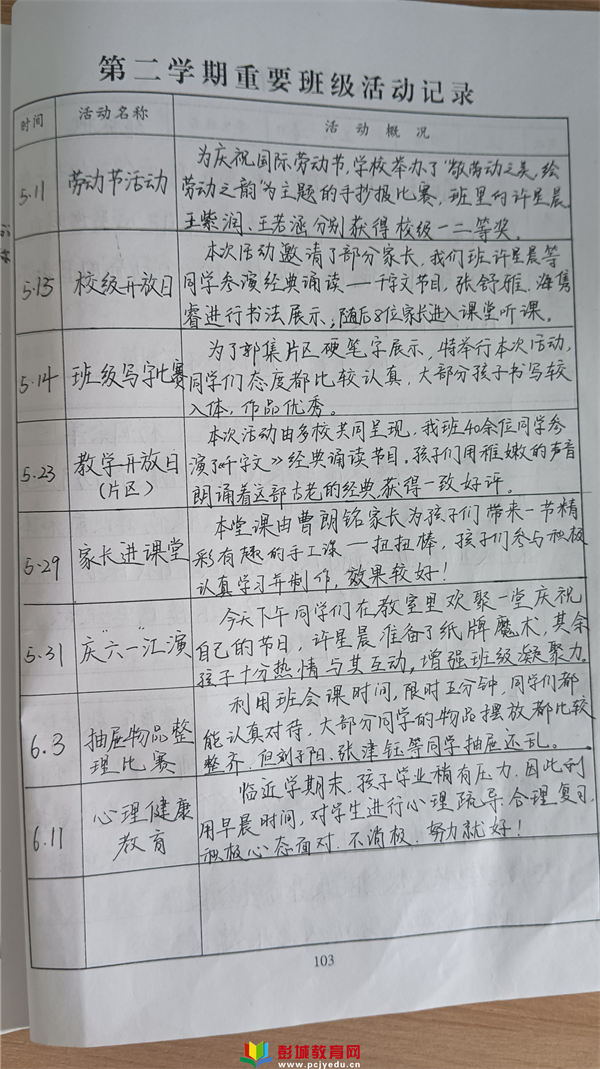 第二学期重要班级活动记录
时间 活动名称 活动概况
5.11 劳动节活动
为庆祝国际劳动节,学校举办了"敬劳动之美,绘
劳动之韵"为主题的手抄报比赛,班里的许星晨
王紫润、王若涵分别获得校级一二等奖。
5.13 校级开放日
本次活动邀请了部分家长,我们班许星晨等
同学参演经典诵读——千字文节目,张舒雅、海隽
睿进行书法展示,随后8位家长进入课堂听课。
5.14 班级写字比赛
为了郭集片区硬笔字展示,特举行本次活动,
同学们态度都比较认真,大部分孩子书写较
入体,作品优秀。
5.23 教学开放日
(片区)
本次活动由多校共同呈现,我班40余位同学参
演了《千字文》经典诵读节目,孩子们用稚嫩的声音
朗诵着这部古老的经典,获得一致好评。
5.29 家长进课堂
本堂课由曹朗铭家长为孩子们带来一节精
彩有趣的手工课——扭扭棒,孩子们参与积极
认真学习并制作,效果较好!
5.31 庆"六一"汇演
今天下午同学们在教室里欢聚一堂庆祝
自己的节日,许星晨准备了纸牌魔术,其余
孩子十分热情与其互动,增强班级凝聚力。
6.3 抽屉物品整
理比赛
利用班会课时间,限时五分钟,同学们都
能认真对待,大部分同学的物品摆放都比较
整齐,但刘子阳、张津钰等同学抽屉还乱。
6.11 心理健康
教育
临近学期末,孩子学业稍有压力,因此利
用早晨时间,对学生进行心理疏导,合理复习,
积极心态面对,不消极,努力就好!
103
彭城教育网
www.pcjyedu.cn